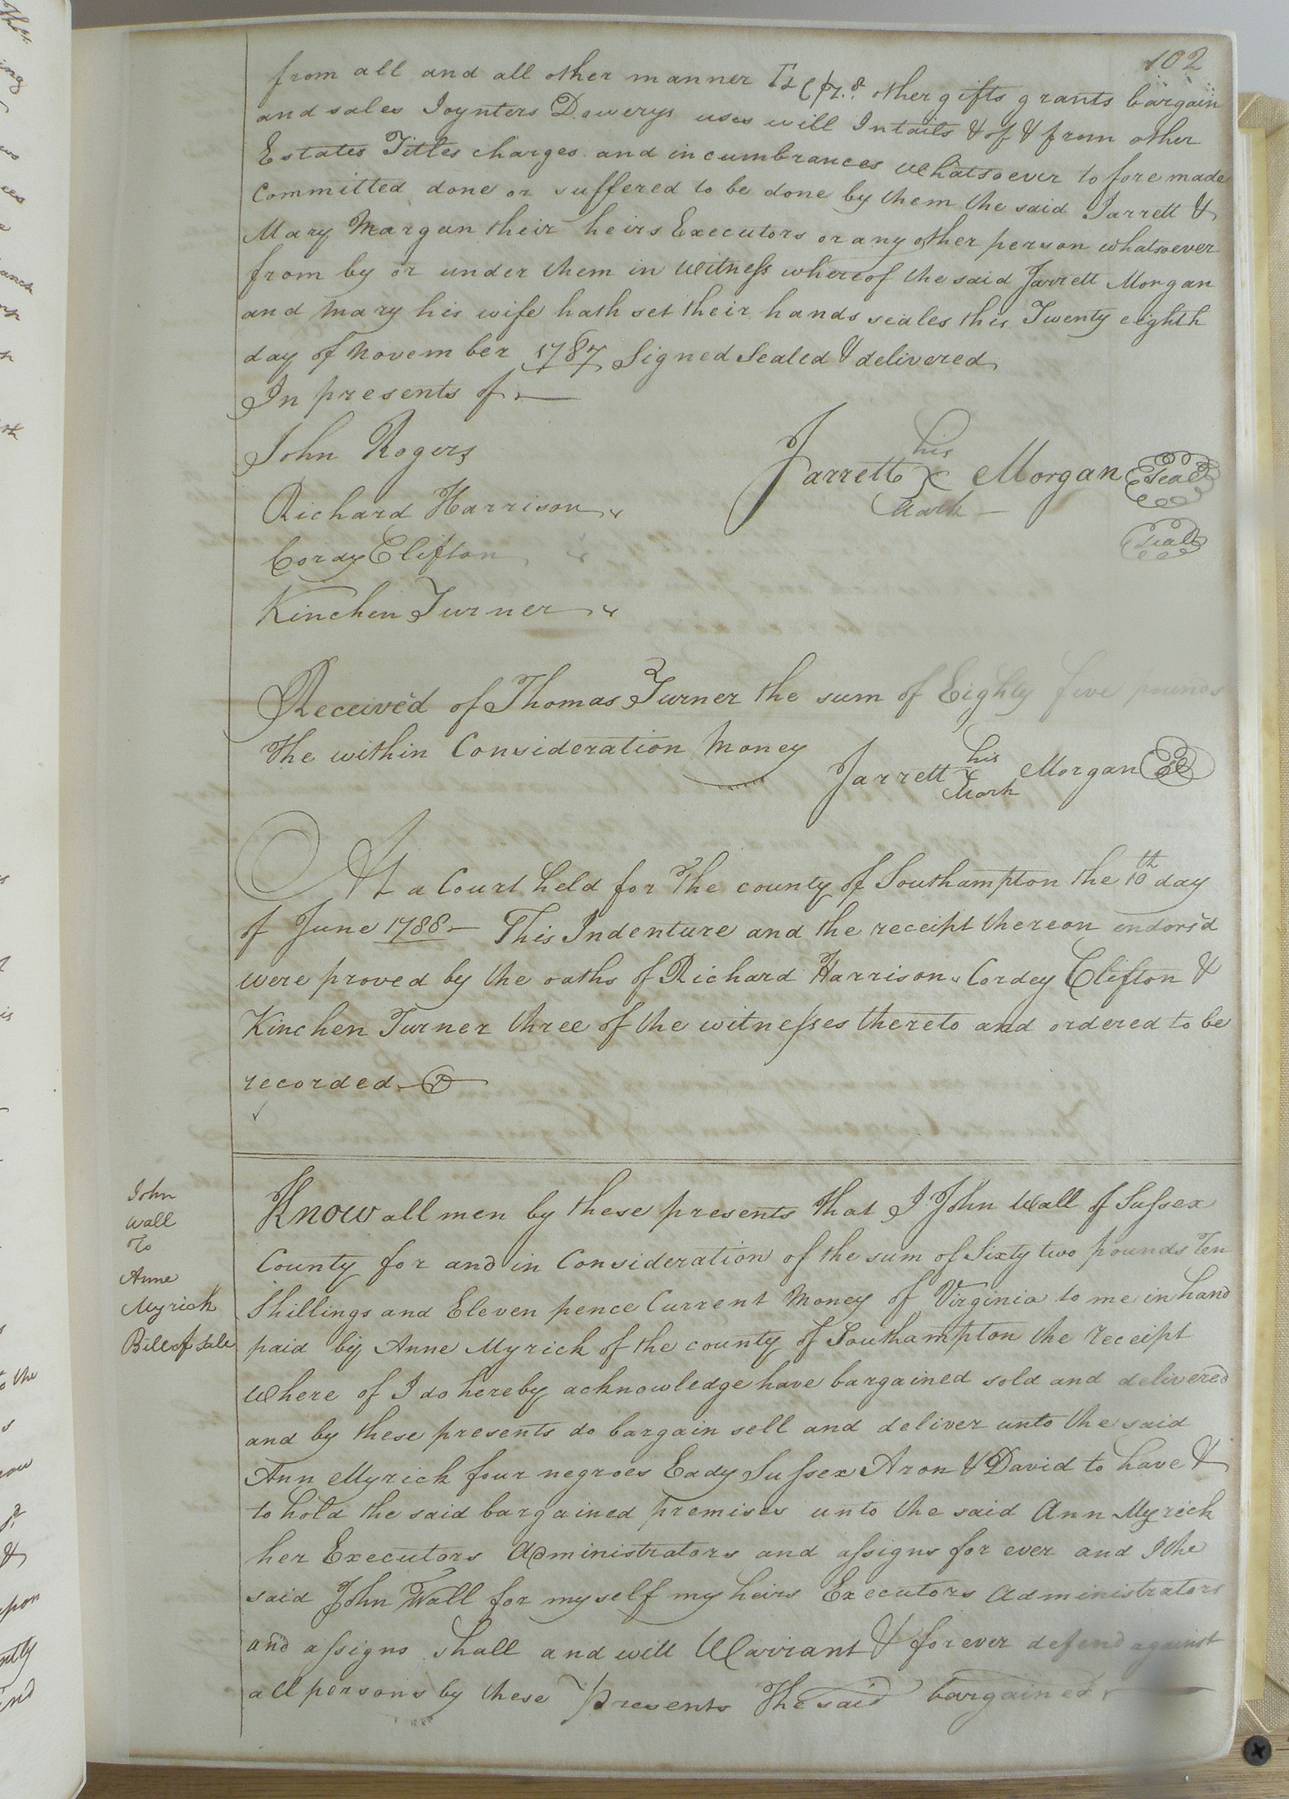 102
from all and all other manner other gifts grants bargain
and sales Joynters Dowerys uses will Intails & of & from other
Estates Titles charges and incumbrances whatsoever to fore made
Committed done or suffered to be done by them the said Jarrett &
Mary Morgan their heirs Executors or any other person whatsoever
from by or under them in witness whereof the said Jarrett Morgan
and Mary his wife hath set their hands seales this Twenty eighth
day of November 1787 Signed Sealed & delivered
In presents of
John Rogers
Richard Harrison
Cordy Clifton
Kinchen Turner
his
Jarrett X Morgan Seal
Mark
Seal
Received of Thomas Turner the sum of Eighty five pounds
the within Consideration Money
his
Jarrett X Morgan
Mark
At a Court held for the county of Southampton the 10th day
of June 1788 - This Indenture and the receipt thereon endors'd
were proved by the oaths of Richard Harrison Cordey Clifton &
Kinchen Turner three of the witnesses thereto and ordered to be
recorded
John
Wall
To
Anne
Myrick
Bill of Sale
Know all men by these presents that I John Wall of Sussex
County for and in Consideration of the sum of Sixty two pounds Ten
Shillings and Eleven pence Current Money of Virginia to me in hand
paid by Anne Myrick of the county of Southampton the receipt
where of I do hereby acknowledge have bargained sold and delivered
and by these presents do bargain sell and deliver unto the said
Ann Myrick four negroes Eady Sussex Aron & David to have &
to hold the said bargained premises unto the said Ann Myrick
her Executors Administrators and assigns for ever and I the
said John Wall for my self my heirs Executors Administrators
and assigns shall and will Warrant & forever defend against
all persons by these Presents The said bargained